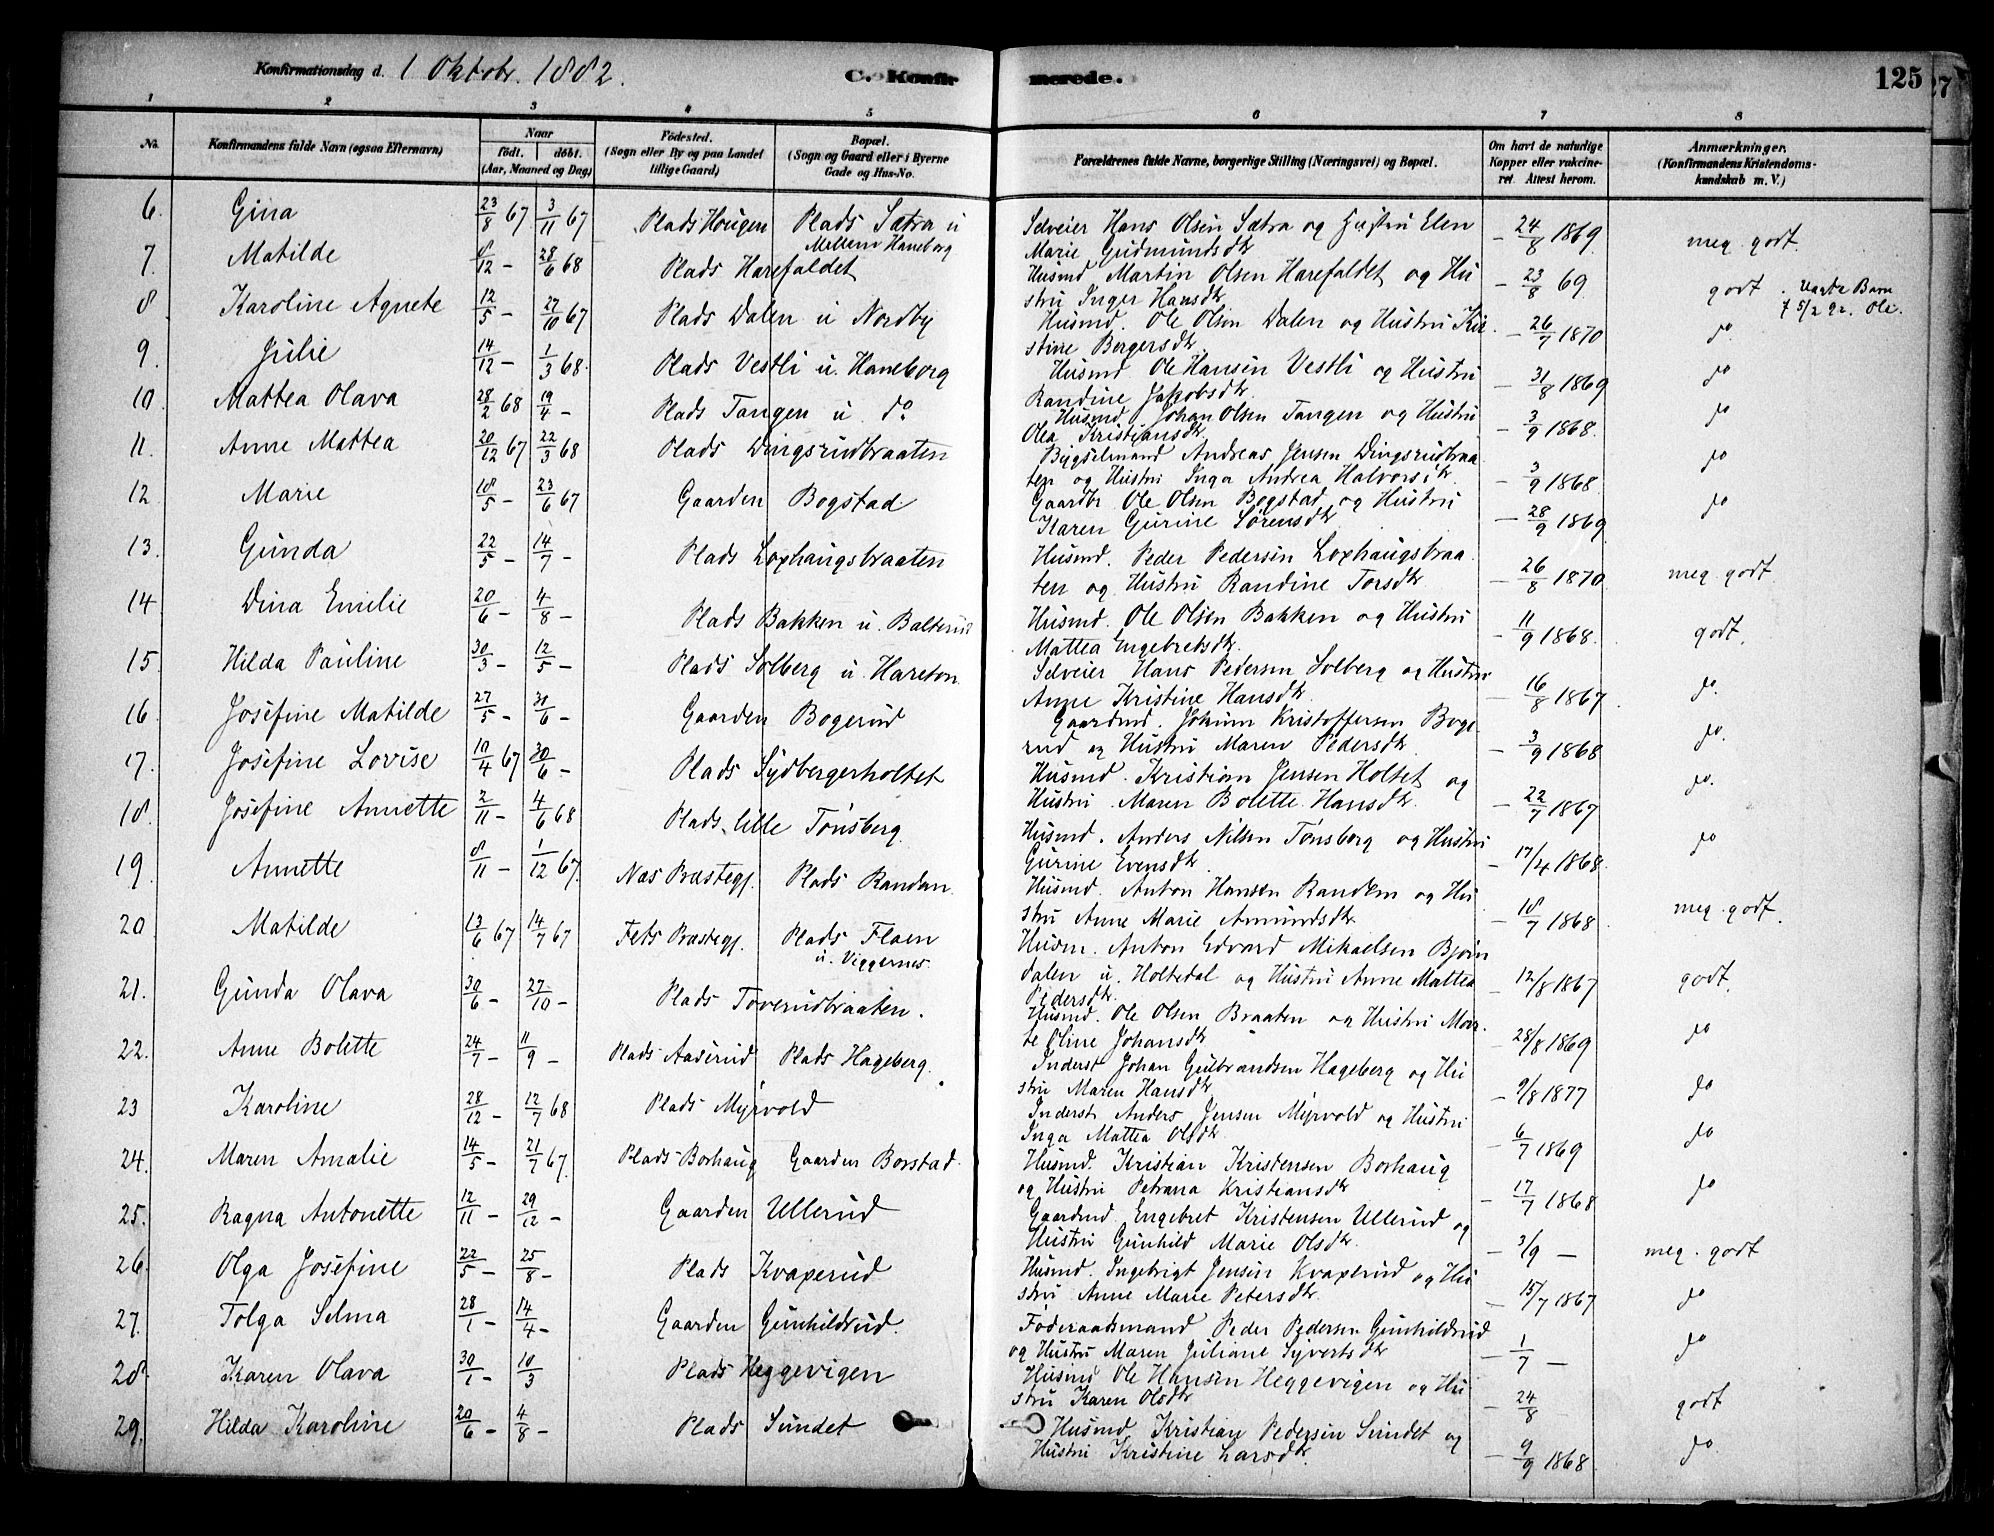 Konfirmationsdag d. 1 Oktobr. 1882.
C. Konfir merede. 125
1 2 3 4 5 6 7 8
No. Konfirmandens fulde Navn (ogsaa Efternavn) Naar født. døbt. (Aar, Maaned og Dag) Fødested. (Sogn eller By og paa Landet tillige Gaard) Bopæl. (Sogn og Gaard eller i Byerne Gade og Hus-No. Forældrenes fulde Navne, borgerlige Stilling (Næringsvei) og Bopæl. Om havt de naturlige Kopper eller vakcineret. Attest herom. Anmærkninger. (Konfirmandens Kristendomskundskab m. V.)
6. Gina 23/8 67 3/11 67 Plads Hougen Plads Sætra u Mellem Haneborg Selveier Hans Olsen Sætra og Hustru Elen Marie Gudmundsdtr – 24/8 1869. meg. godt.
7. Matilde 8/12 – 28/6 68 Plads Harefaldet Husmd Martin Olsen Harefaldet og Hustru Inger Hansdtr – 23/8 69. godt
8. Karoline Agnete 12/5 – 27/10 67 Plads Dalen u Nordby Husmd. Ole Olsen Dalen og Hustru Kirstine Borgersdtr – 26/7 1870 do
9. Julie 14/12 – 1/3 68. Plads Vestli u. Haneborg Husmd Ole Hansen Vestli og Hustru Randine Jakobsdtr – 31/8 1869 do
10. Mattea Olava 28/2 68 19/4 – Plads Tangen u do Husmd Johan Olsen Tangen og Hustru Olea Kristiansdtr. – 3/9 1868. do
11. Anne Mattea 20/12 67 22/3 68 Plads Dingsrudbraaten Bygselmand Andreas Jensen Dingsrudbraaten og Hustru Inga Andrea Halvorsdtr – 3/9 1868. do
12 Marie 18/5 – 23/6 67 Gaarden Bogstad Gaardbr Ole Olsen Bogstad og Hustru Karen Gurine Sørensdtr – 28/9 1869 do
13. Gunda 22/5 – 14/7 – Plads Loxhaugsbraaten Husmd. Peder Pedersen Loxhaugsbraaten og Hustru Randine Torsdtr – 26/8 1870. meg. godt
14 Dina Emilie 20/6 – 4/8 – Plads Bakken u. Balterud Husmd. Ole Olsen Bakken og Hustru Mattea Engebretsdtr. – 11/9 1868. godt.
15. Hilda Pauline 30/3 – 12/5 – Plads Solberg u. Hareton Selveier Hans Pedersen Solberg og Hustru Anne Kristine Hansdtr. – 16/8 1867. do.
16 Josefine Matilde 27/5 – 30/6 – Gaarden Bogerud Gaardmd. Johan Kristoffersen Bogerud og Hustru Maren Pedersdtr. – 3/9 1868 do.
17. Josefine Lovise 10/4 67 30/6 – Plads Sydbergerholtet Husmd. Kristian Jensen Holtet og Hustru Maren Bolette Hansdtr. – 22/7 1867 do.
18. Josefine Annette 2/11 – 4/6 68 Plads lille Tønsberg. Husmd. Anders Nilsen Tønsberg og Hustru Gurine Evensdtr. – 17/4 1868. do
19. Annette 8/11 – 1/12 67. Næs Præstegj. Plads Randan. Husmd. Anton Hansen Randem og Hustru Anne Marie Amundsdtr. – 18/7 1868. meg. godt.
20 Matilde 13/6 67 14/7 67 Fets Præstegj. Plads Flaen u. Viggernes. Husm. Anton Edvard Mikaelsen Bjørndalen u. Holtedal og Hustru Anne Mattea Pedersdtr. – 12/8 1867 godt.
21. Gunda Olava 30/6 – 27/10 – Plads Toverudbraaten. Husmd. Ole Olsen Braaten og Hustru Marte Oline Johansdtr – 28/8 1869 do
22. Anne Bolette 24/7 – 11/9 – Plads Aaserud Plads Hageberg. Inderst Johan Gulbrandsen Hageberg og Hustru Maren Hansdtr – 9/8 1877 do
23 Karoline 28/12 – 12/7 68 Plads Myrvold Inderst Anders Jensen Myrvold og Hustru Inga Mattea Olsdtr. – 6/7 1869 do
24. Maren Amalie 14/5 – 21/7 67. Plads Borhaug Gaarden Borstad. Husmd. Kristian Kristensen Borhaug og Hustru Petrana Kristiansdtr – 17/7 1868 do
25. Ragna Antonette 12/11 – 29/12 – Gaarden Ullerud Gaardmd. Engebret Kristensen Ullerud og Hustru Gunhild Marie Olsdtr. – 3/9 – meg. godt
26. Olga Josefine 22/5 – 25/8 – Plads Kvaperud Husmd. Ingebrigt Jensen Kvaperud og Hustru Anne Marie Petersdtr. – 15/7 1867 do
27. Tolga Selma 28/1 – 14/4 – Gaarden Gunhildrud. Føderaadsmand Peder Pedersen Gunhildrud og Hustru Maren Juliane Syvertsdtr – 1/7 – do
28. Karen Olava 30/1 – 10/3 Plads Heggevigen Husmd Ole Hansen Heggevigen og Hustru Karen Olsdtr – 24/8 godt
29. Hilda Karoline 20/6 – 4/8 – Plads Sundet Husmd. Kristian Pedersen Sundet og Hustru Kristine Larsdtr. – 9/9 1868 do